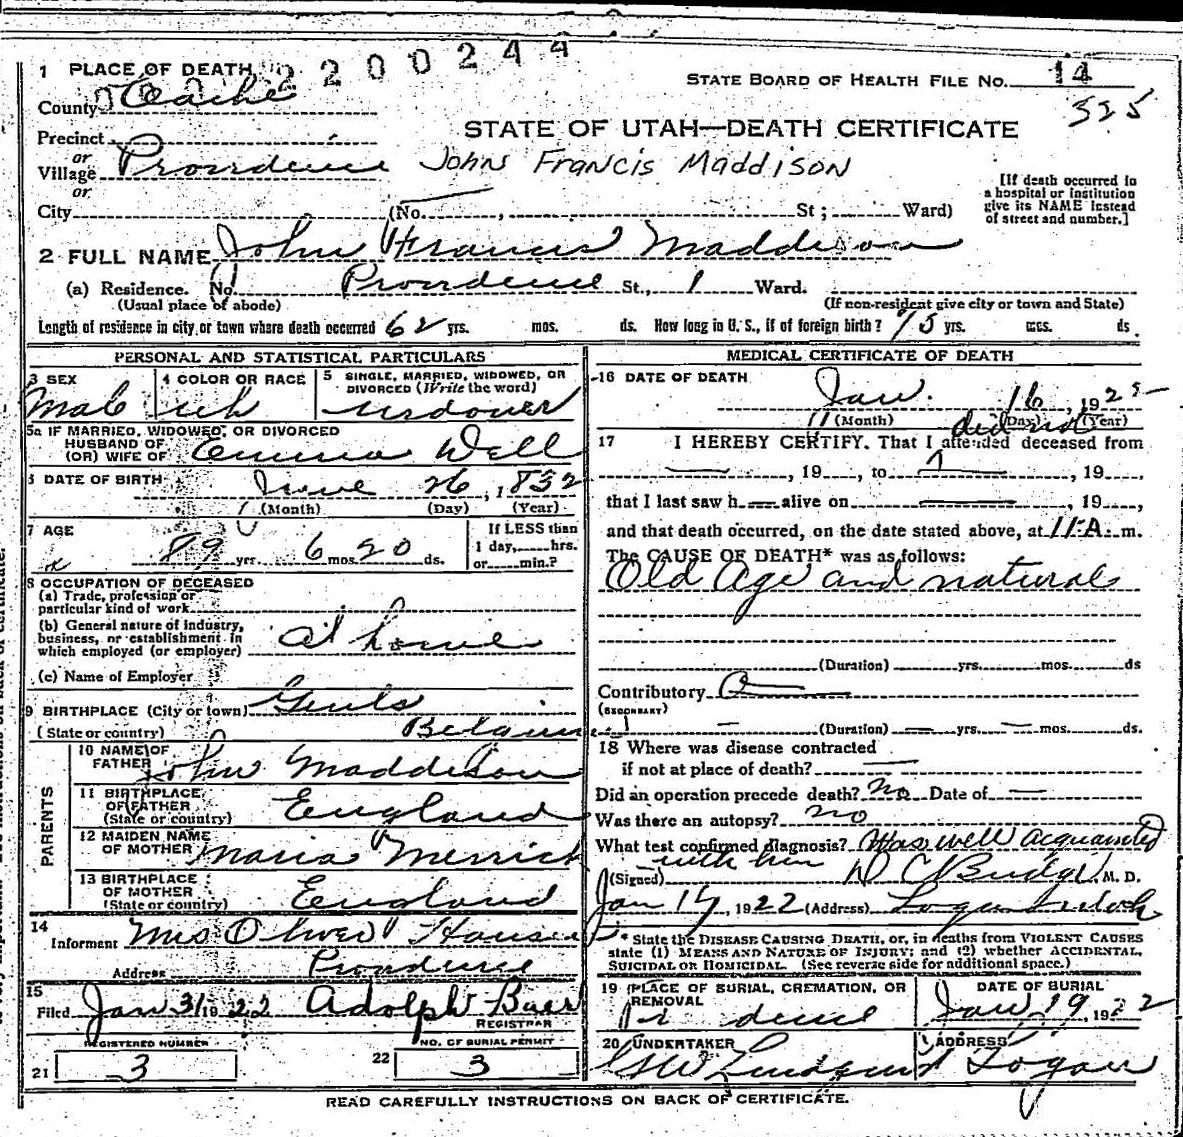 2200244
1 PLACE OF DEATH
STATE BOARD OF HEALTH FILE No. 14
County Cache
325
STATE OF UTAH—DEATH CERTIFICATE
Precinct
or
Village Providence
John Francis Maddison
or
[If death occurred in
a hospital or institution
give its NAME instead
of street and number.]
City (No. , St; Ward)
2 FULL NAME John Francis Maddison
(a) Residence. No. Providence St., 1 Ward.
(Usual place of abode) (If non-resident give city or town and State)
Length of residence in city or town where death occurred 62 yrs. mos. ds. How long in U. S., if of foreign birth? 75 yrs. mos. ds.
PERSONAL AND STATISTICAL PARTICULARS
3 SEX Male
4 COLOR OR RACE wh
5 SINGLE, MARRIED, WIDOWED, OR
DIVORCED (Write the word)
widower
5a IF MARRIED, WIDOWED, OR DIVORCED
HUSBAND OF
(OR) WIFE OF Emma Well
6 DATE OF BIRTH June 26, 1832
(Month) (Day) (Year)
7 AGE 89 yrs. 6 mos. 20 ds.
If LESS than
1 day, hrs.
or min.?
8 OCCUPATION OF DECEASED
(a) Trade, profession or
particular kind of work
(b) General nature of industry,
business, or establishment in
which employed (or employer) at home
(c) Name of Employer
9 BIRTHPLACE (City or town)
(State or country)
PARENTS
10 NAME OF
FATHER John Maddison
11 BIRTHPLACE
OF FATHER
(State or country) England
12 MAIDEN NAME
OF MOTHER Maria Merrick
13 BIRTHPLACE
OF MOTHER
(State or country) England
14
Informent Mrs Oliver Hansen
Address Providence
15
Filed Jan 31 1922 Adolph Baer
REGISTRAR
REGISTERED NUMBER
21 3
NO. OF BURIAL PERMIT
22 3
MEDICAL CERTIFICATE OF DEATH
16 DATE OF DEATH
Jan. 16, 1925
(Month) (Day) (Year)
did not
17 I HEREBY CERTIFY, That I attended deceased from
, 19 , to , 19
that I last saw h alive on , 19 ,
and that death occurred, on the date stated above, at 11 A. m.
The CAUSE OF DEATH* was as follows:
Old Age and natural
(Duration) yrs. mos. ds
Contributory
(SECONDARY)
(Duration) yrs. mos. ds.
18 Where was disease contracted
if not at place of death?
Did an operation precede death? no Date of
Was there an autopsy? no
What test confirmed diagnosis? Was well acquainted
with him
(Signed) D C Budge, M. D.
Jan 17, 1922 (Address) Logan Utah
* State the DISEASE CAUSING DEATH, or, in deaths from VIOLENT CAUSES
state (1) MEANS AND NATURE OF INJURY; and (2) whether ACCIDENTAL,
SUICIDAL OR HOMICIDAL. (See reverse side for additional space.)
19 PLACE OF BURIAL, CREMATION, OR
REMOVAL
Providence
DATE OF BURIAL
Jan 19, 1922
20 UNDERTAKER
ADDRESS
Logan
READ CAREFULLY INSTRUCTIONS ON BACK OF CERTIFICATE.